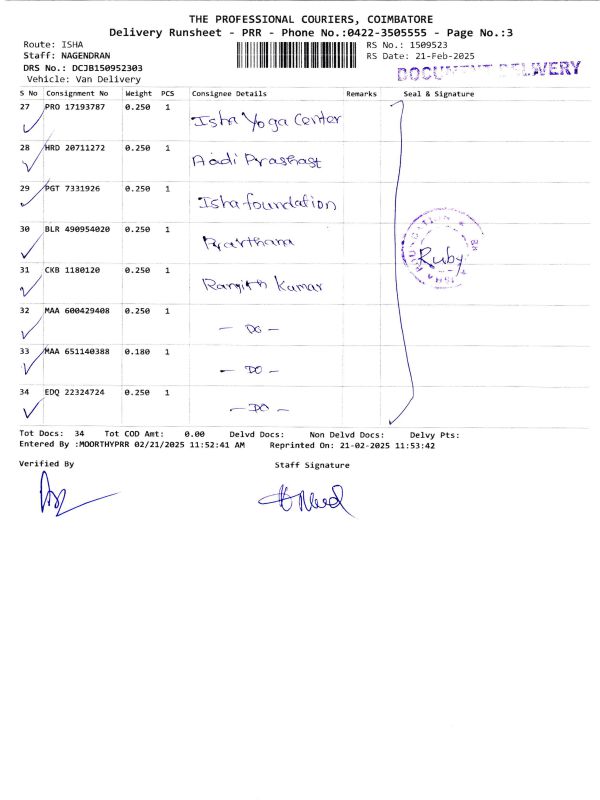 THE PROFESSIONAL COURIERS, COIMBATORE
Delivery Runsheet - PRR - Phone No.:0422-3505555 - Page No.:3
Route: ISHA RS No.: 1509523
Staff: NAGENDRAN RS Date: 21-Feb-2025
DRS No.: DCJB150952303 DOCUMENT DELIVERY
Vehicle: Van Delivery
S No Consignment No Weight PCS Consignee Details Remarks Seal & Signature
27 PRO 17193787 0.250 1 Isha Yoga Center
28 HRD 20711272 0.250 1 Aadi Prashast
29 PGT 7331926 0.250 1 Isha foundation
30 BLR 490954020 0.250 1 Prarthana
31 CKB 1180120 0.250 1 Ranjith Kumar
32 MAA 600429408 0.250 1 - DO -
33 MAA 651140388 0.180 1 - DO -
34 EDQ 22324724 0.250 1 - DO -
ISHA FOUNDATION
Ruby
Tot Docs: 34 Tot COD Amt: 0.00 Delvd Docs: Non Delvd Docs: Delvy Pts:
Entered By :MOORTHYPRR 02/21/2025 11:52:41 AM Reprinted On: 21-02-2025 11:53:42
Verified By Staff Signature